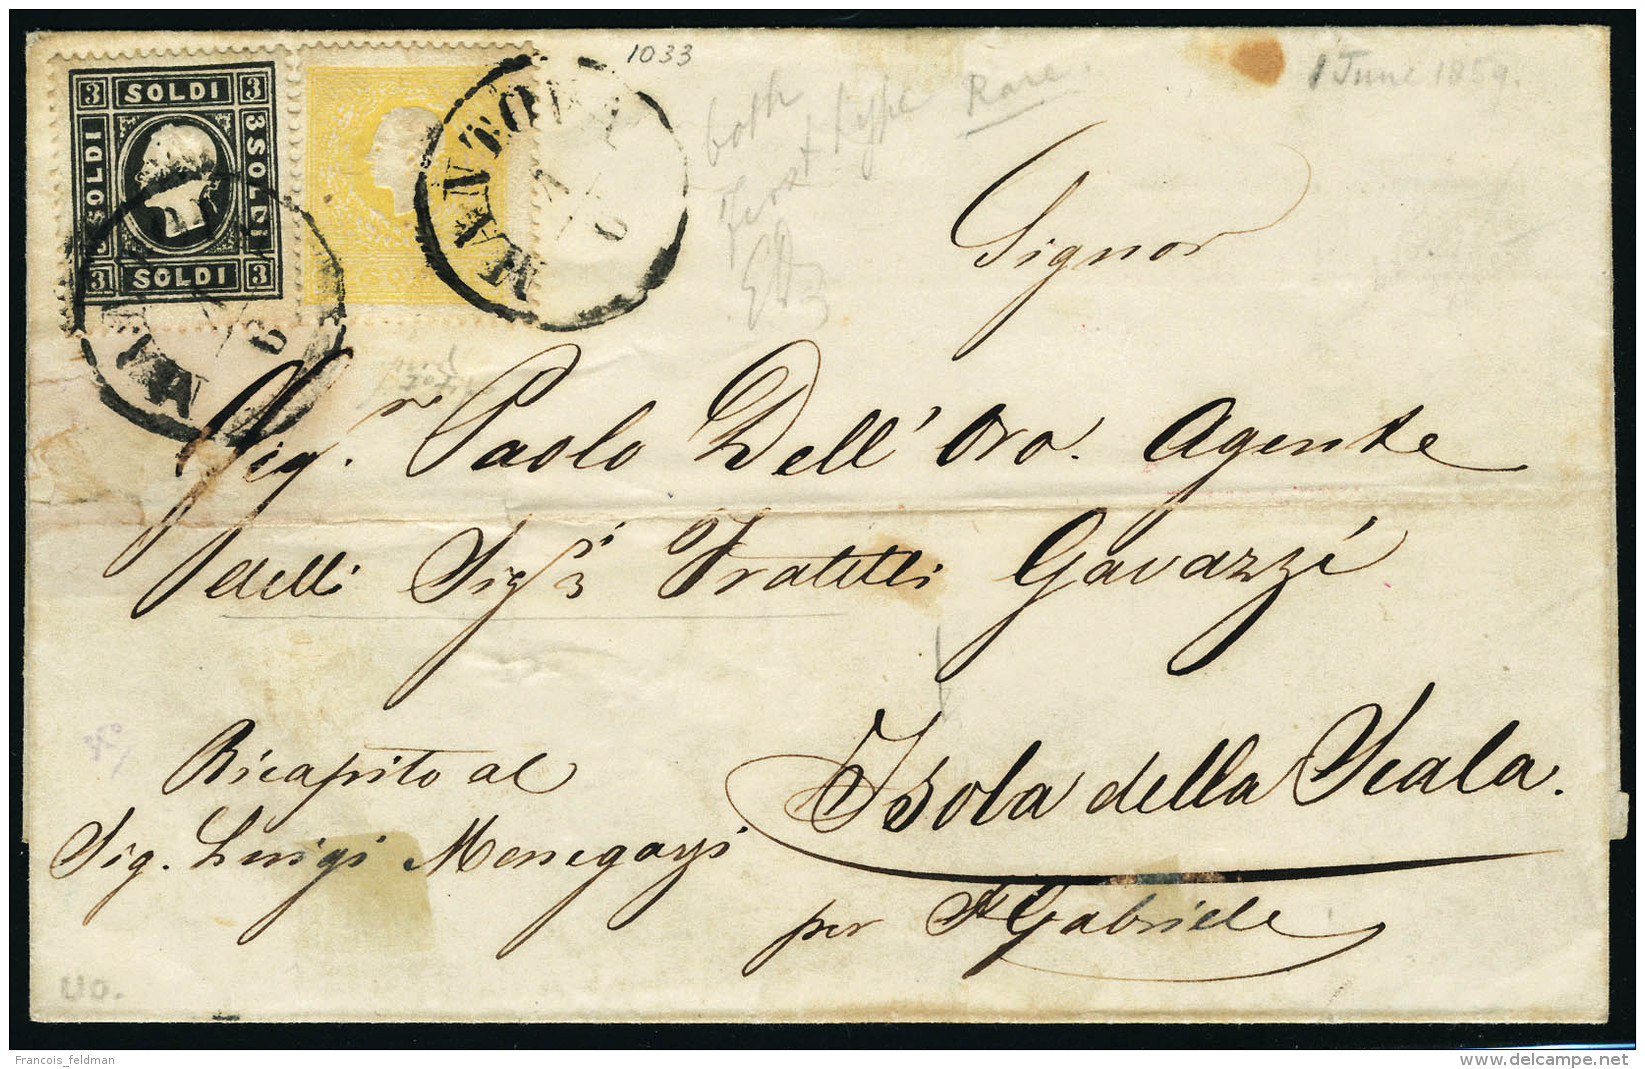 1033
1 June 1859.
both
first type Rare.
3 SOLDI 3
SOLDI
3 SOLDI
3 SOLDI 3
MANTOVA
1
6
MAN
6
Signor
Sig.r Paolo Dell'Oro. Agente
delli Sig.ri Fratelli Gavazzi
Ricapito al
Sig. Luigi Menegazzi
Isola della Scala.
per S Gabriele
210.
Francois_feldman
www.delcampe.net